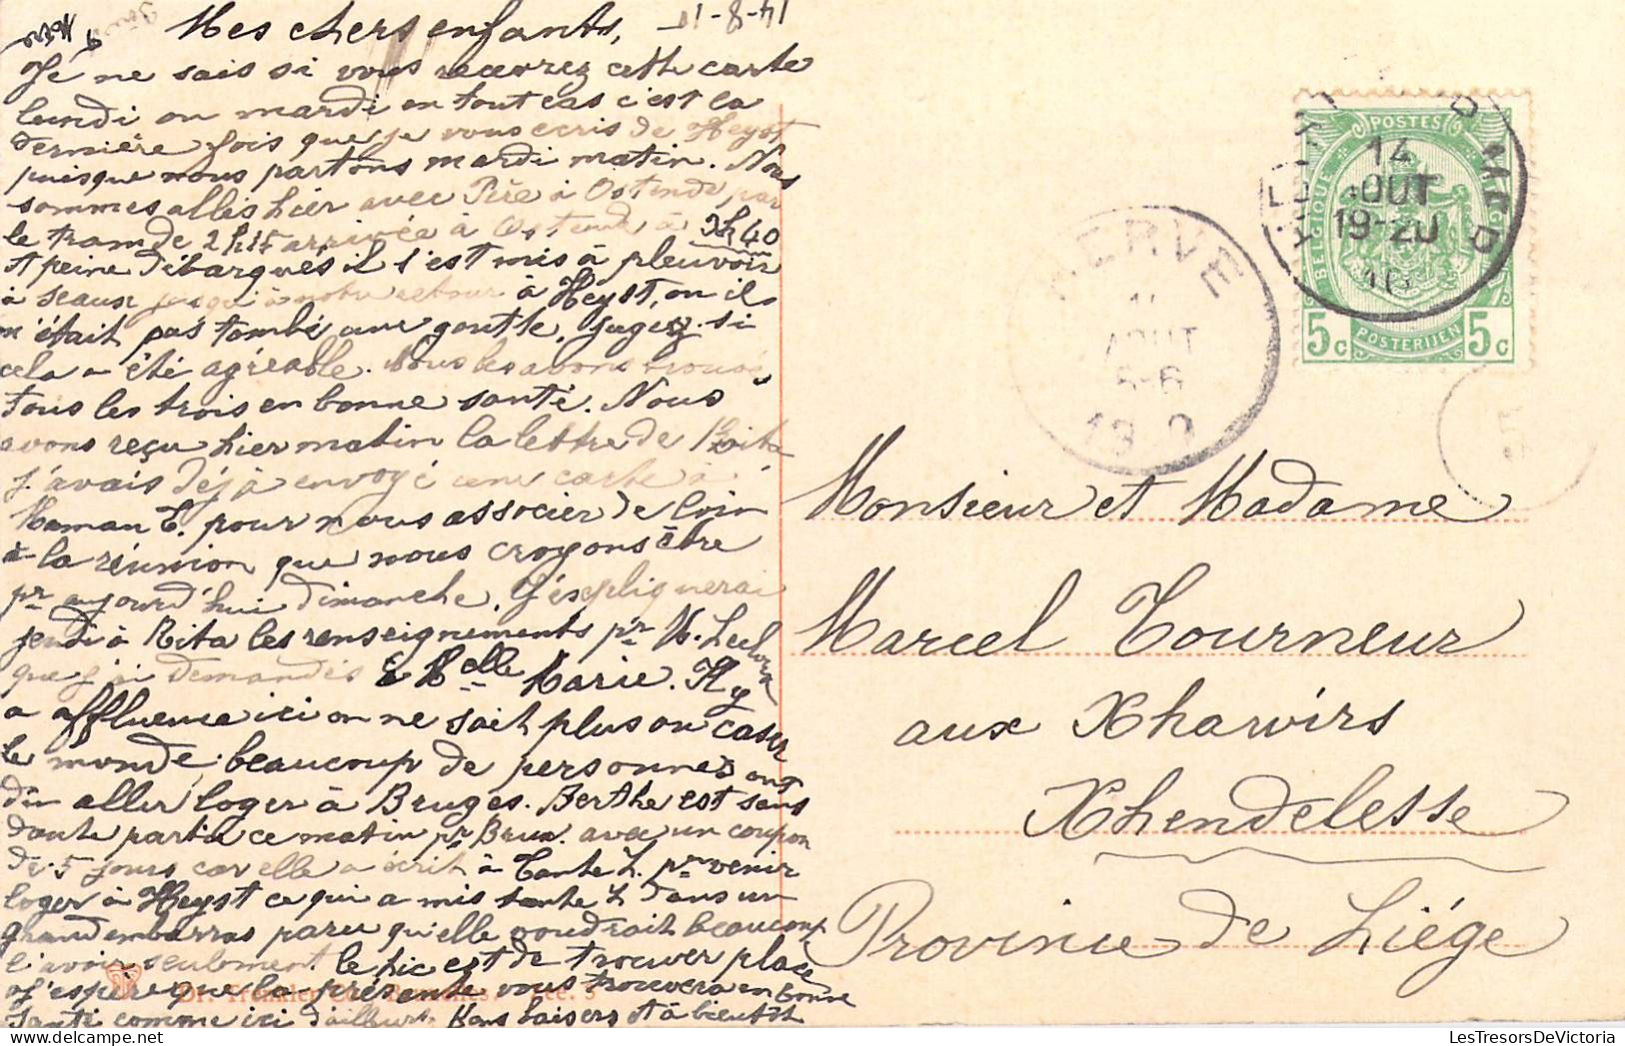 Mes chers enfants, 14-8-10
Je ne sais si vous recevrez cette carte
lundi ou mardi en tout cas c'est la
dernière fois que je vous écris de Heyst
puisque nous partons mardi matin. Nous
sommes allés hier avec Père à Ostende par
le tram de 2h15 arrivée à Ostende à 3h40
et peine débarqués il s'est mis à pleuvoir
à seaux jusqu'à notre retour à Heyst, ou il
n'était pas tombé une goutte, jugez si
cela a été agréable. Nous les avons trouvé
tous les trois en bonne santé. Nous
avons reçu hier matin la lettre de Rita
j'avais déjà envoyé une carte à
Maman T. pour nous associer de loin
à la réunion que nous croyons être
pr aujourd'hui dimanche. J'expliquerai
jeudi à Rita les renseignements pr M.
que j'ai demandés à Melle Marie. Il y
a affluence ici on ne sait plus ou caser
le monde, beaucoup de personnes ont
du aller loger à Bruges. Berthe est sans
doute partie ce matin pr Brux. avec un coupon
de 5 jours car elle a écrit à Tante L. pr venir
loger à Heyst ce qui a mis tante L dans un
grand embarras parce qu'elle voudrait beaucoup
l'avoir seulement le hic est de trouver place
J'espère que la présente vous trouvera en bonne
santé comme ici d'ailleurs. Bons baisers et à bientôt
Dr. Trenkler Co.
POSTES
BELGIQUE
BELGIE
POSTERIJEN
5c 5c
14
AOUT
19-20
10
HERVE
AOUT
5-6
Monsieur et Madame
Marcel Tourneur
aux Xhawirs
Xhendelesse
Province de Liége
LesTresorsDeVictoria.com